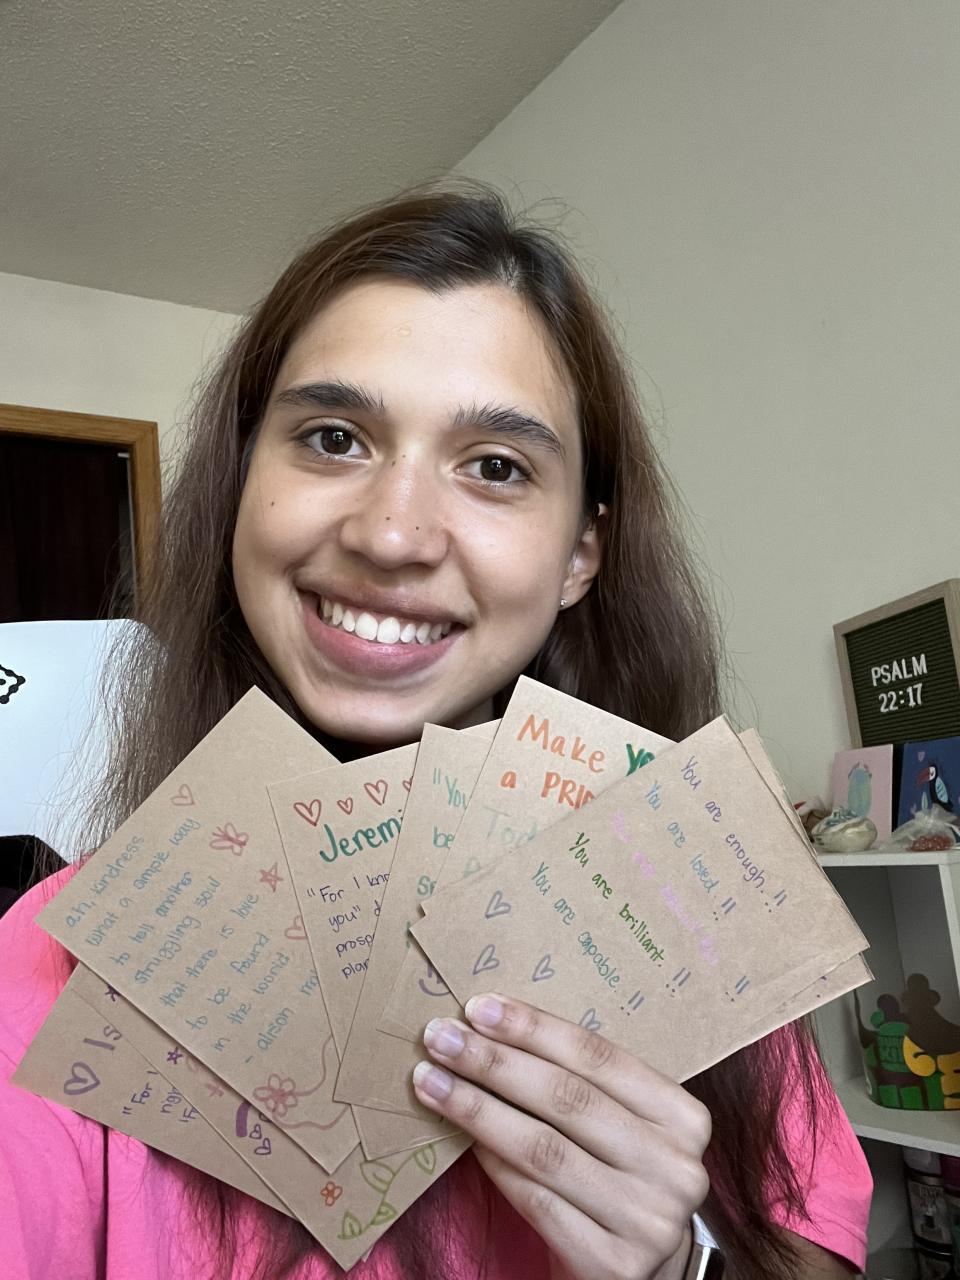 PSALM
22:17
ah, kindness
what a simple way
to tell another
struggling soul
that there is love
to be found
in the world
- alison
Jeremi
"For I kno
you" d
prosp
plan
"You
be
Make
a PRI
You are enough.!!
You are loved!!
You are brilliant.!!
You are capable!!
Is
"For I